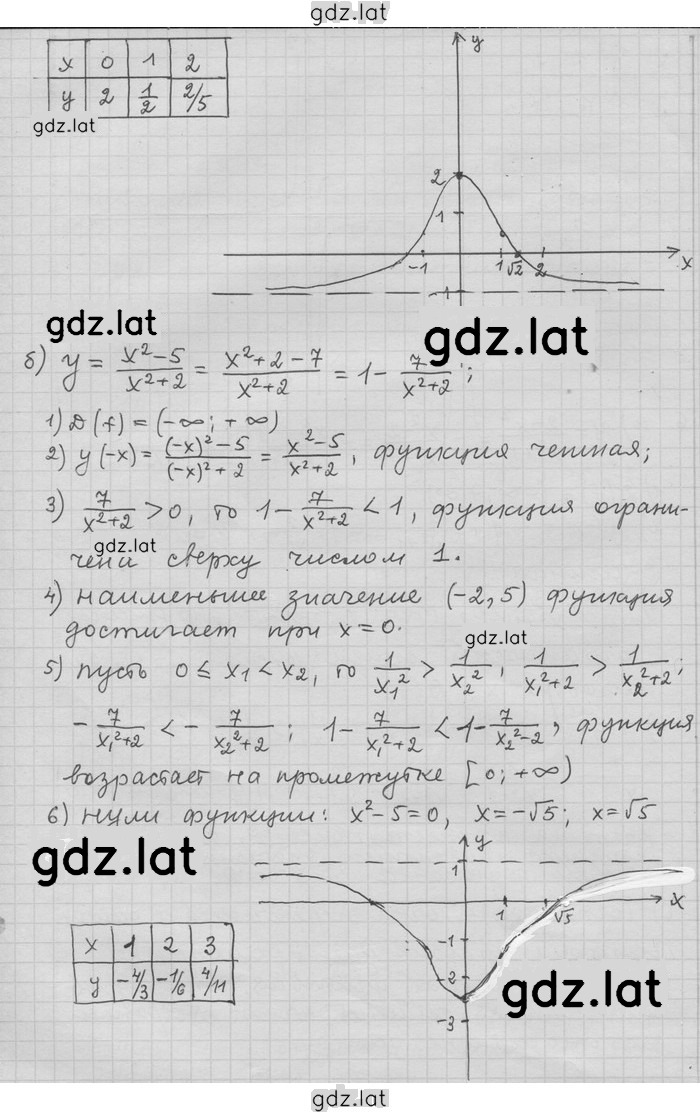 gdz.lat
x 0 1 2
y 2 1/2 2/5
gdz.lat
y
2
1
-1 1 √2 2 x
-1
gdz.lat
gdz.lat
б) y = (x²-5)/(x²+2) = (x²+2-7)/(x²+2) = 1 - 7/(x²+2);
1) D(f) = (-∞; +∞)
2) y(-x) = ((-x)²-5)/((-x)²+2) = (x²-5)/(x²+2), функция четная;
3) 7/(x²+2) > 0, то 1 - 7/(x²+2) < 1, функция ограни-
gdz.lat
чена сверху числом 1.
4) наименьшее значение (-2,5) функция
достигает при x=0.
gdz.lat
5) пусть 0 ≤ x₁ < x₂, то 1/x₁² > 1/x₂², 1/(x₁²+2) > 1/(x₂²+2);
- 7/(x₁²+2) < - 7/(x₂²+2); 1 - 7/(x₁²+2) < 1 - 7/(x₂²-2), функция
возрастает на промежутке [0; +∞)
6) нули функции: x²-5=0, x=-√5; x=√5
gdz.lat
y
1
1 √5 x
-1
-2
-3
x 1 2 3
y -4/3 -1/6 4/11
gdz.lat
gdz.lat